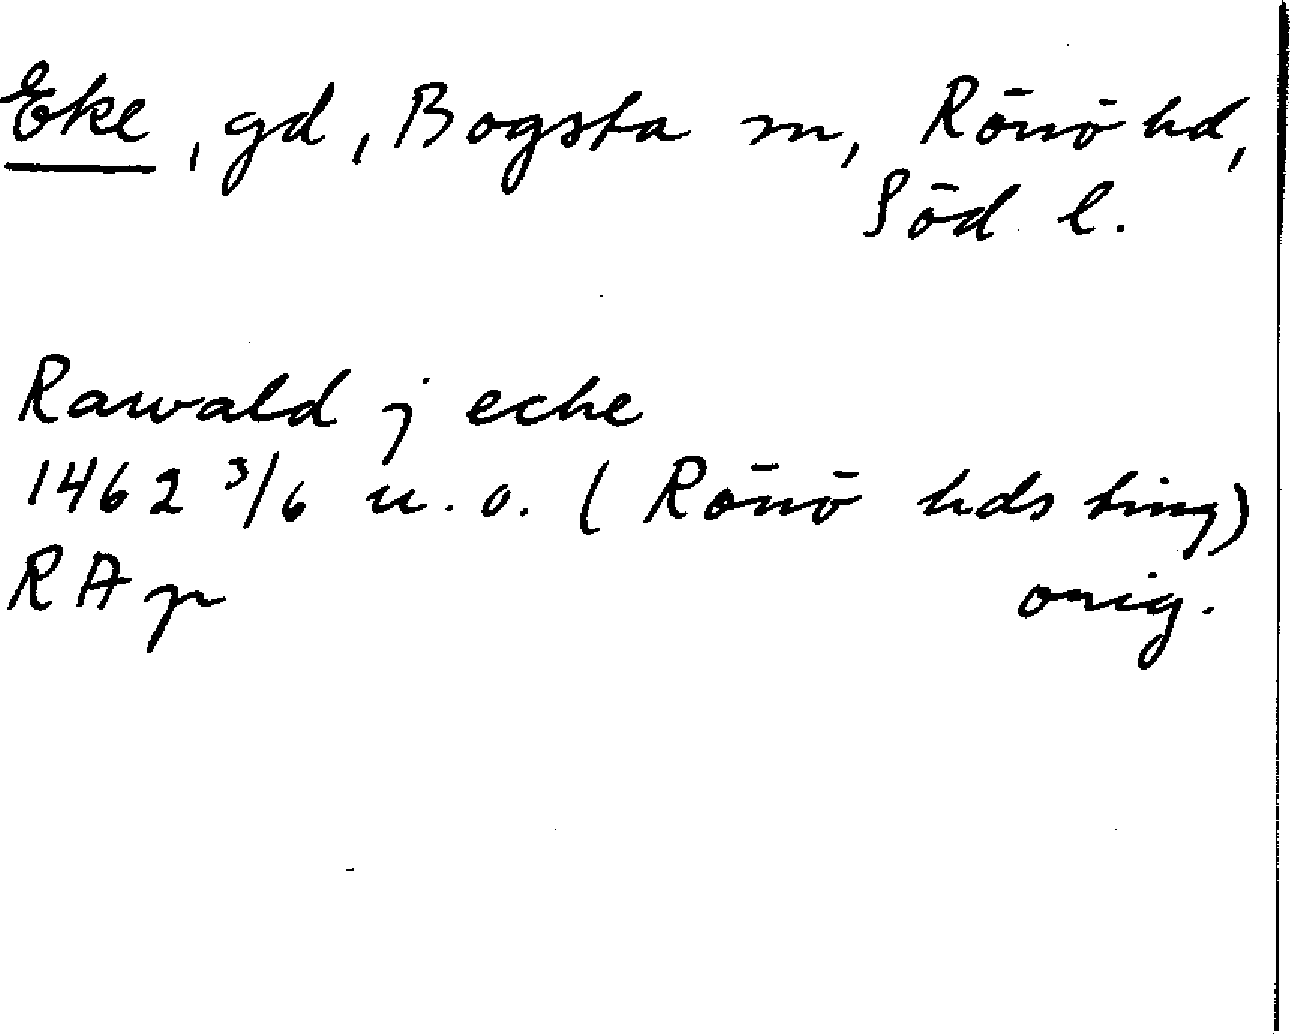 Eke, gd, Bogsta sn, Rönö hd,
Söd l.
Rawald j eche
1462 3/6 u.o. (Rönö hds ting)
RAp orig.